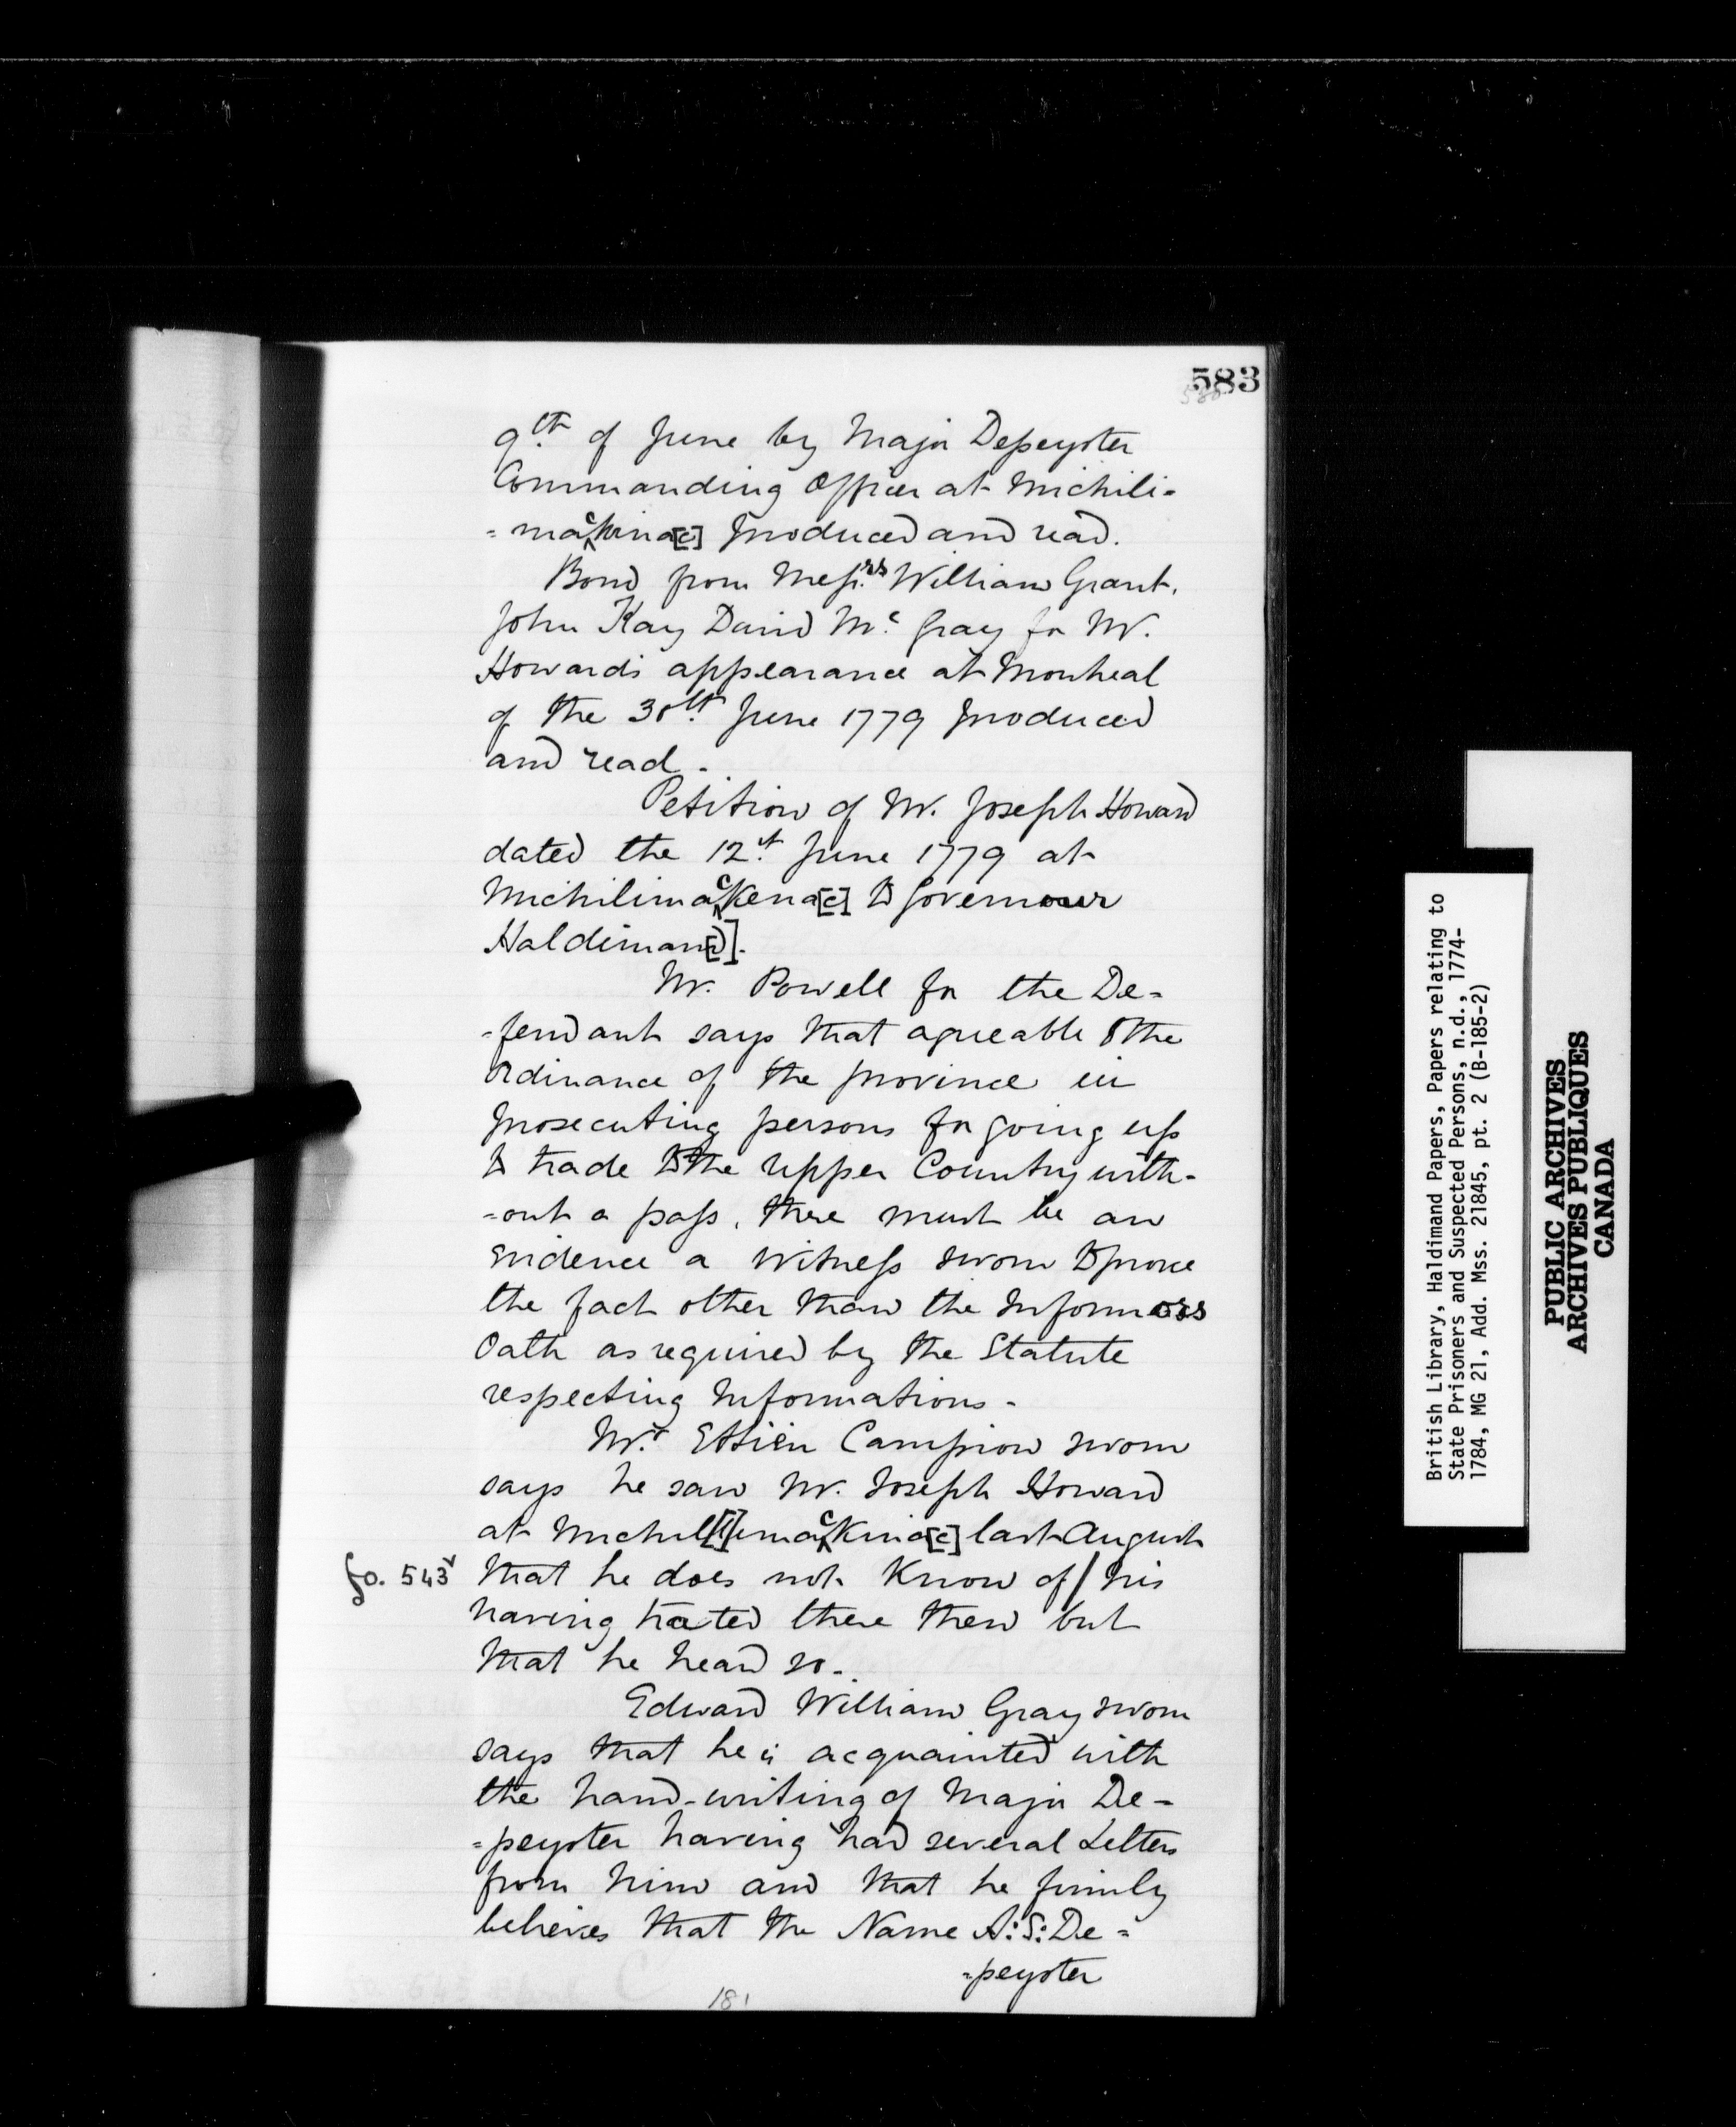 583
9th of June by Major Depeyster
Commanding Officer at Michili-
=mackina[c] produced and read.
Bond from Messrs William Grant.
John Kay David Mc Gray for Mr.
Howards appearance at Montreal
of the 30th June 1779 produced
and read.
Petition of Mr. Joseph Howard
dated the 12th June 1779 at
Michilimackena[c] to Governour
Haldiman[d].
Mr. Powell for the De=
-fendant says that agreable to the
Ordinance of the province in
prosecuting persons for going up
to trade to the Upper Country with-
-out a pass, there must be an
Evidence a Witness sworn to prove
the fact other than the Informors
Oath as required by the Statute
respecting Informations.
Mr. Ettien Campion sworn
says he saw Mr. Joseph Howard
at Michil[l]imackina[c] last August
fo. 543v that he does not Know of / his
having traited there then but
that he heard so.
Edward William Gray sworn
says that he is acquainted with
the hand-writing of Major De-
=peyster having had several Letters
from him and that he firmly
believes that the Name A: S: De=
=peyster
181
British Library, Haldimand Papers, Papers relating to
State Prisoners and Suspected Persons, n.d., 1774-
1784, MG 21, Add. Mss. 21845, pt. 2 (B-185-2)
PUBLIC ARCHIVES
ARCHIVES PUBLIQUES
CANADA